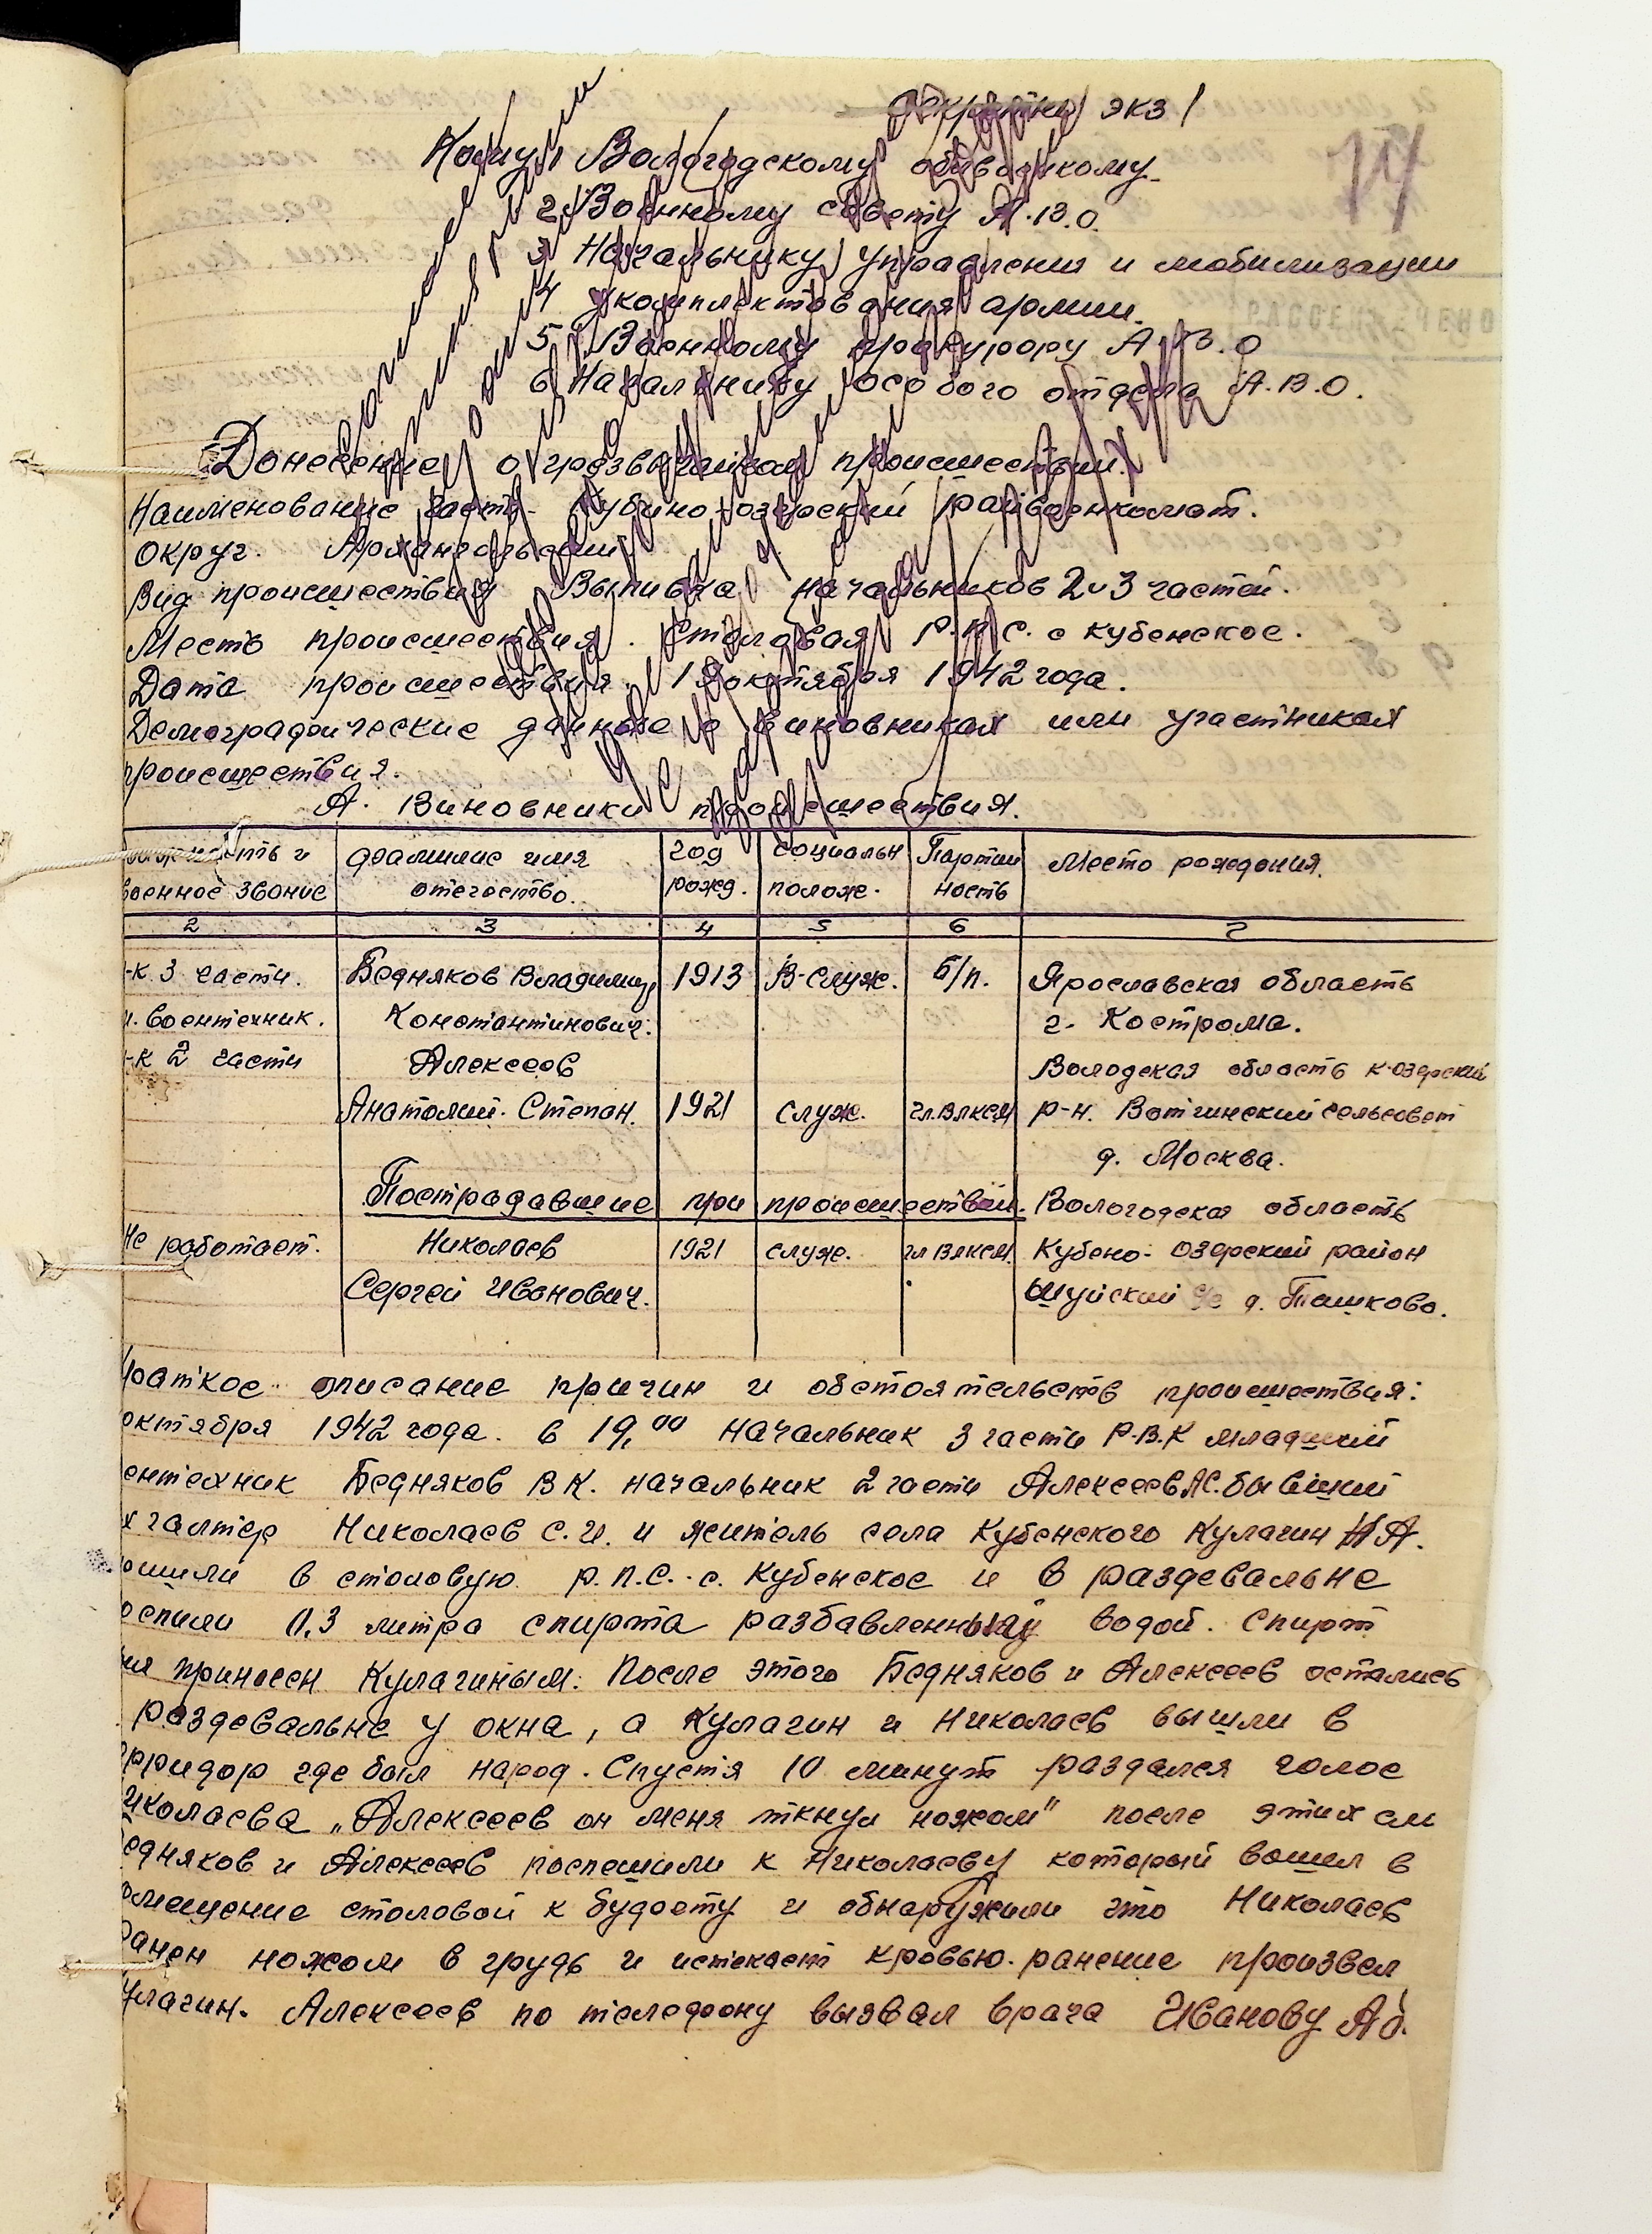 экз 1
Кому 1 Вологодскому облвоенкому.
2. Военному совету А.В.О.
3 Начальнику управления и мобилизации
4 укомплектования армии.
5 Военному прокурору А.В.О
6 Начальнику особого отдела А.В.О.
Донесение о чрезвычайном происшествии.
Наименование части - Кубино-озерский райвоенкомат.
Округ. Архангельский
Вид происшествия Выпивка начальников 2 и 3 частей.
Место происшествия. Столовая Р.П.С. с Кубенское.
Дата происшествия. октября 1942 года.
Демографические данные о виновниках или участниках
происшествия.
А. Виновники происшествия.
и фамилие имя год социальн Партий Место рождения.
военное звание отчество. рожд. полож. ность
2 3 4 5 6 7
-к 3 части. Бедняков Владимир 1913 В-служ. Б/п. Ярославская область
воентехник. Константинович. г. Кострома.
-к 2 части Алексеев Володская область к-озерский
Анатолий. Степан. 1921 служ. чл.ВЛКСМ р-н. Вотчинский сельсовет
д. Москва.
Пострадавшие при происшествии. Вологодская область
Не работает. Николаев 1921 служ. чл ВЛКСМ. Кубено-озерский район
Сергей Иванович. Шуйский с/с д. Пашково.
Краткое описание причин и обстоятельств происшествия:
октября 1942 года. в 19,00 начальник 3 части Р.В.К младший
ентехник Бедняков В К. начальник 2 части Алексеев АС. бывший
хгалтер Николаев С.И. и житель села Кубенского Кулагин
ошли в столовую р.п.с. с. Кубенское и в раздевальне
оспили 0,3 литра спирта разбавленный водой. Спирт
принесен Кулагиным. После этого Бедняков и Алексеев остались
раздевальне у окна, а Кулагин и Николаев вышли в
рридор где был народ. Спустя 10 минут раздался голос
иколаева „Алексеев он меня ткнул ножом" после этих сл
едняков и Алексеев поспешили к Николаеву который вошел в
омещение столовой к буфету и обнаружили что Николаев
ранен ножом в грудь и истекает кровью. ранение произвел
улагин. Алексеев по телефону вызвал врача Иванову